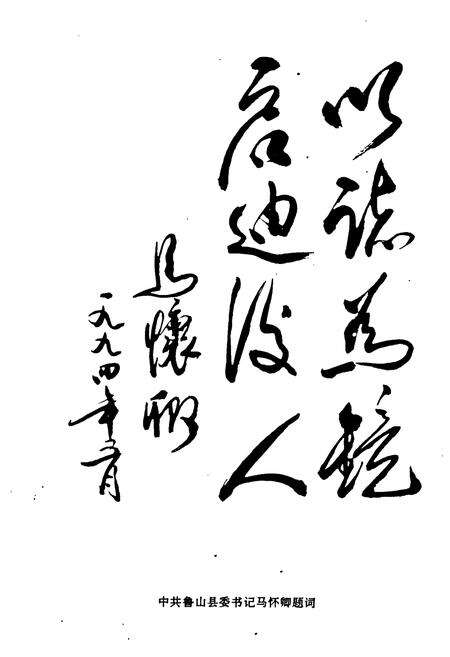 以志为镜
启迪后人
马怀卿
一九九四年五月
中共鲁山县委书记马怀卿题词